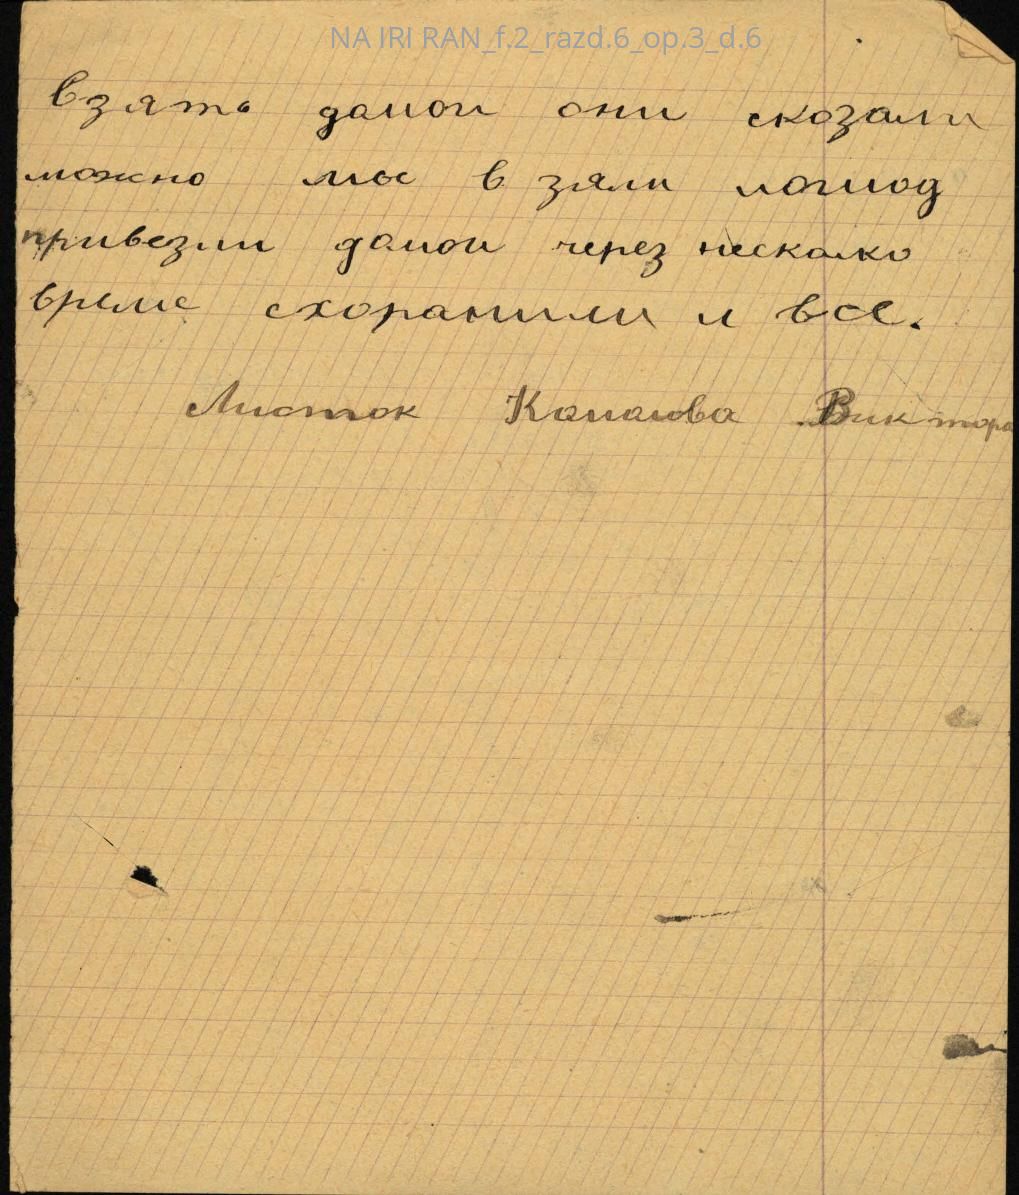 NA IRI RAN_f.2_razd.6_op.3_d.6
взять дамои они скозали
можно мы в зяли лошод
привезли дамои через несколко
време схоранили и все.
Листок Виктора